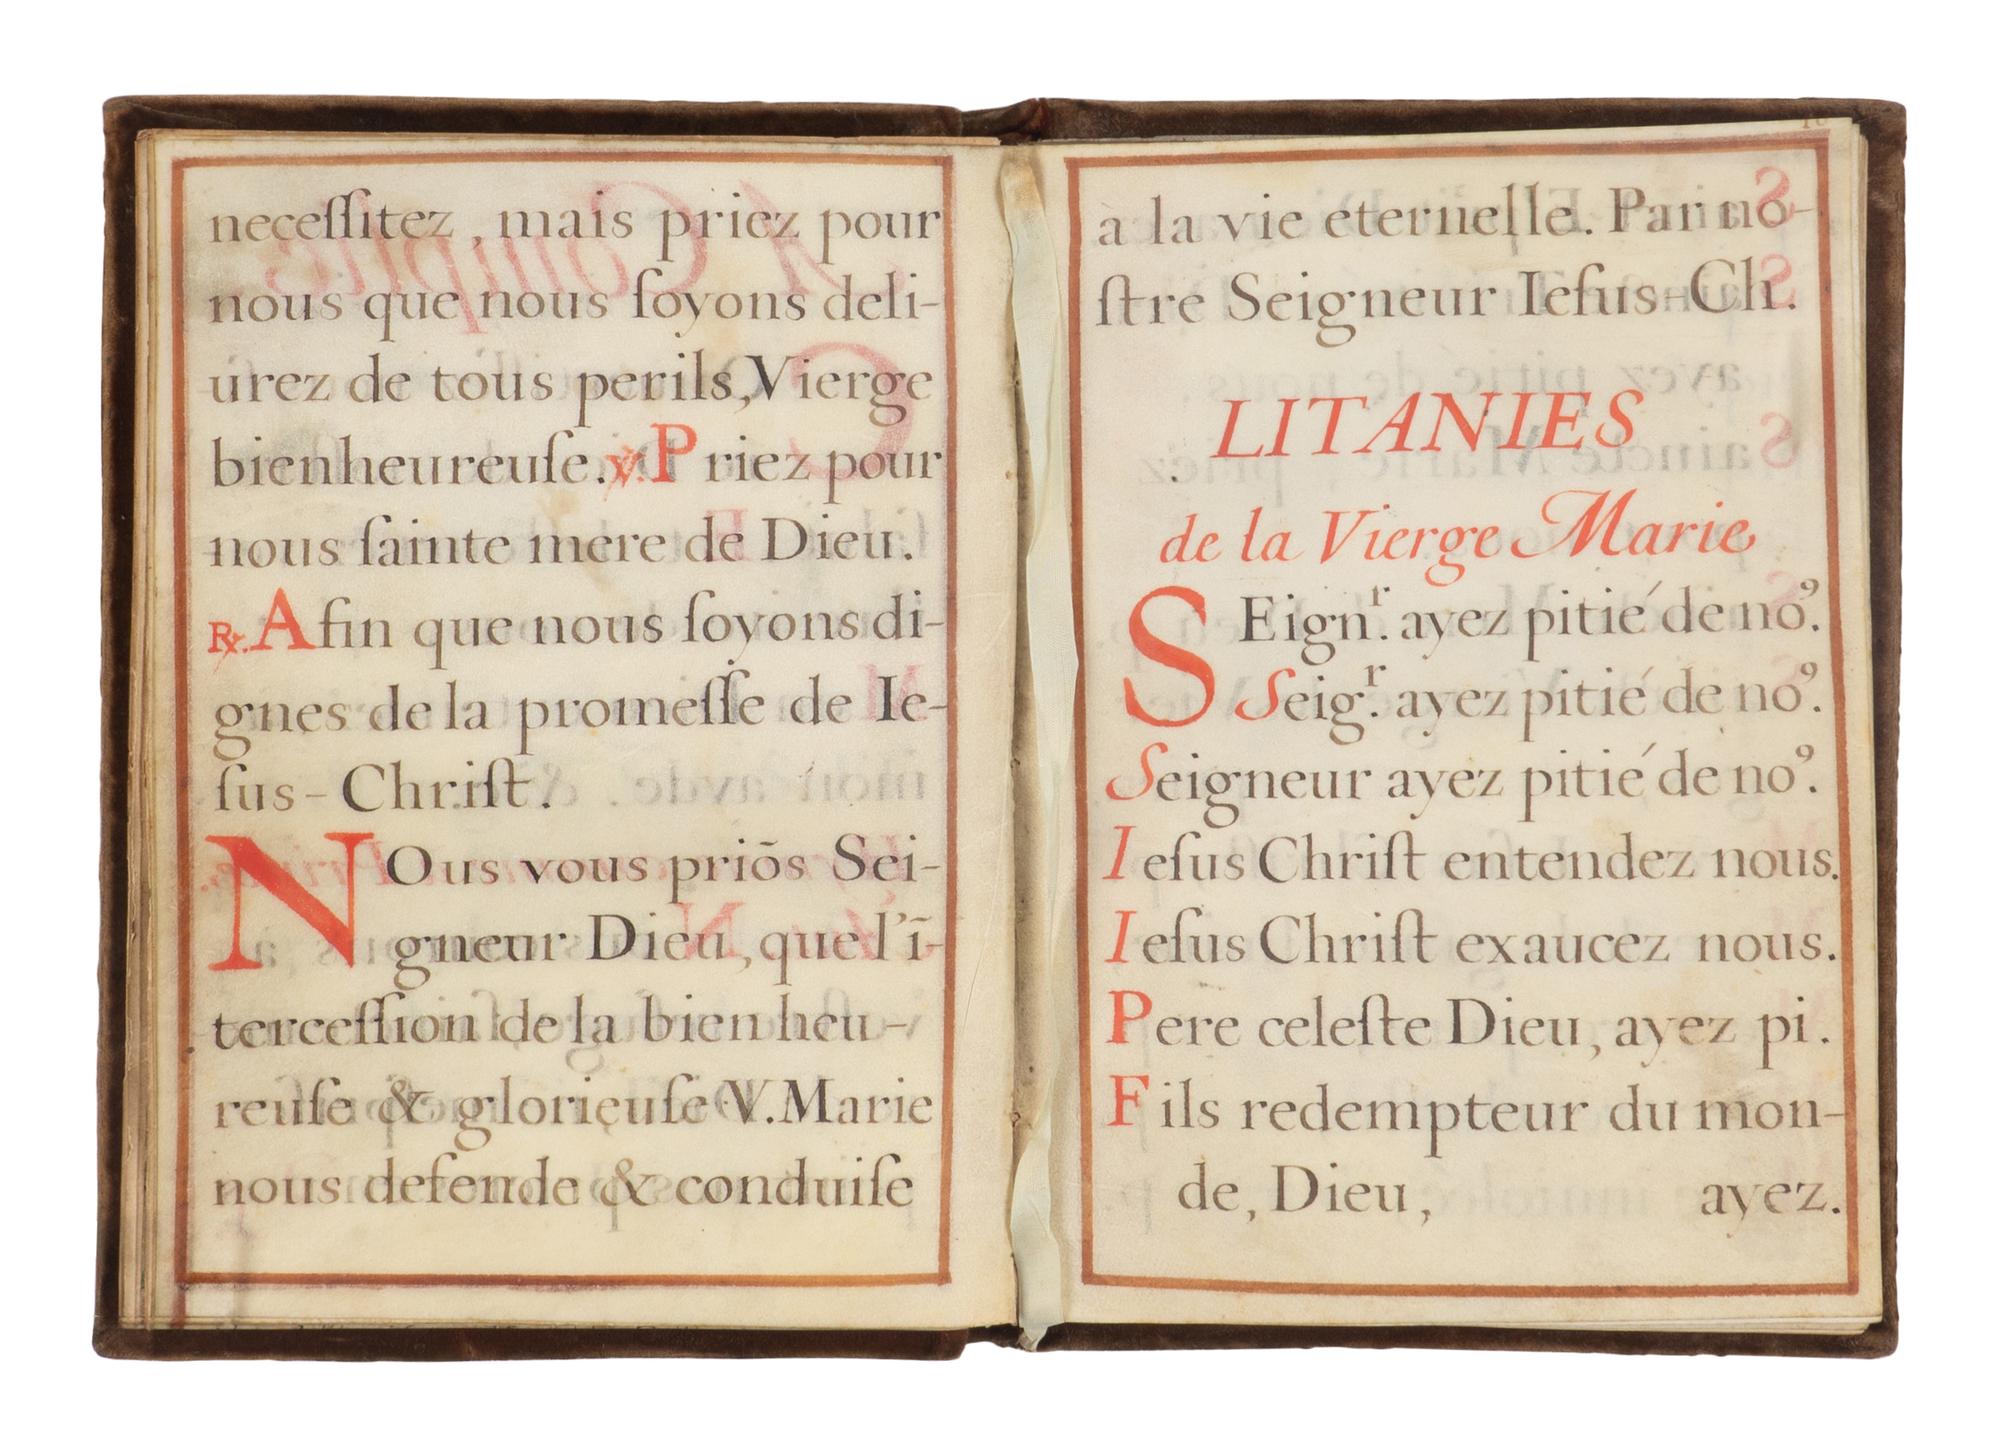 neceſſitez, mais priez pour
nous que nous ſoyons deli-
urez de tous perils, Vierge
bienheureuſe. ℣. Priez pour
nous ſainte mere de Dieu.
℞. Afin que nous ſoyons di-
gnes de la promeſſe de Ie-
ſus-Chriſt.
NOus vous priõs Sei-
gneur Dieu, que l'ĩ-
terceſſion de la bien heu-
reuſe & glorieuſe V. Marie
nous defende & conduiſe
à la vie eternelle. Par no-
ſtre Seigneur Ieſus-Ch.
LITANIES
de la Vierge Marie
SEignʳ. ayez pitié de noꝰ.
Seigʳ. ayez pitié de noꝰ.
Seigneur ayez pitié de noꝰ.
Ieſus Chriſt entendez nous.
Ieſus Chriſt exaucez nous.
Pere celeſte Dieu, ayez pi.
Fils redempteur du mon-
de, Dieu, ayez.